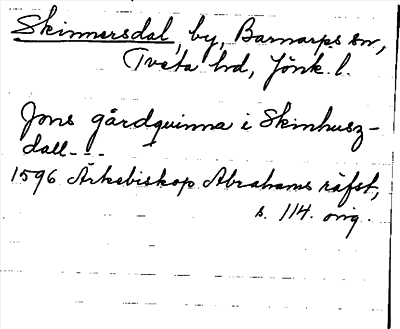 Skinnersdal, by, Barnarps sn,
Tveta hd, Jönk. l.
Jons gårdquinna i Skinhusz-
dall---
1596 Ärkebiskop Abrahams räfst,
s. 114. orig.